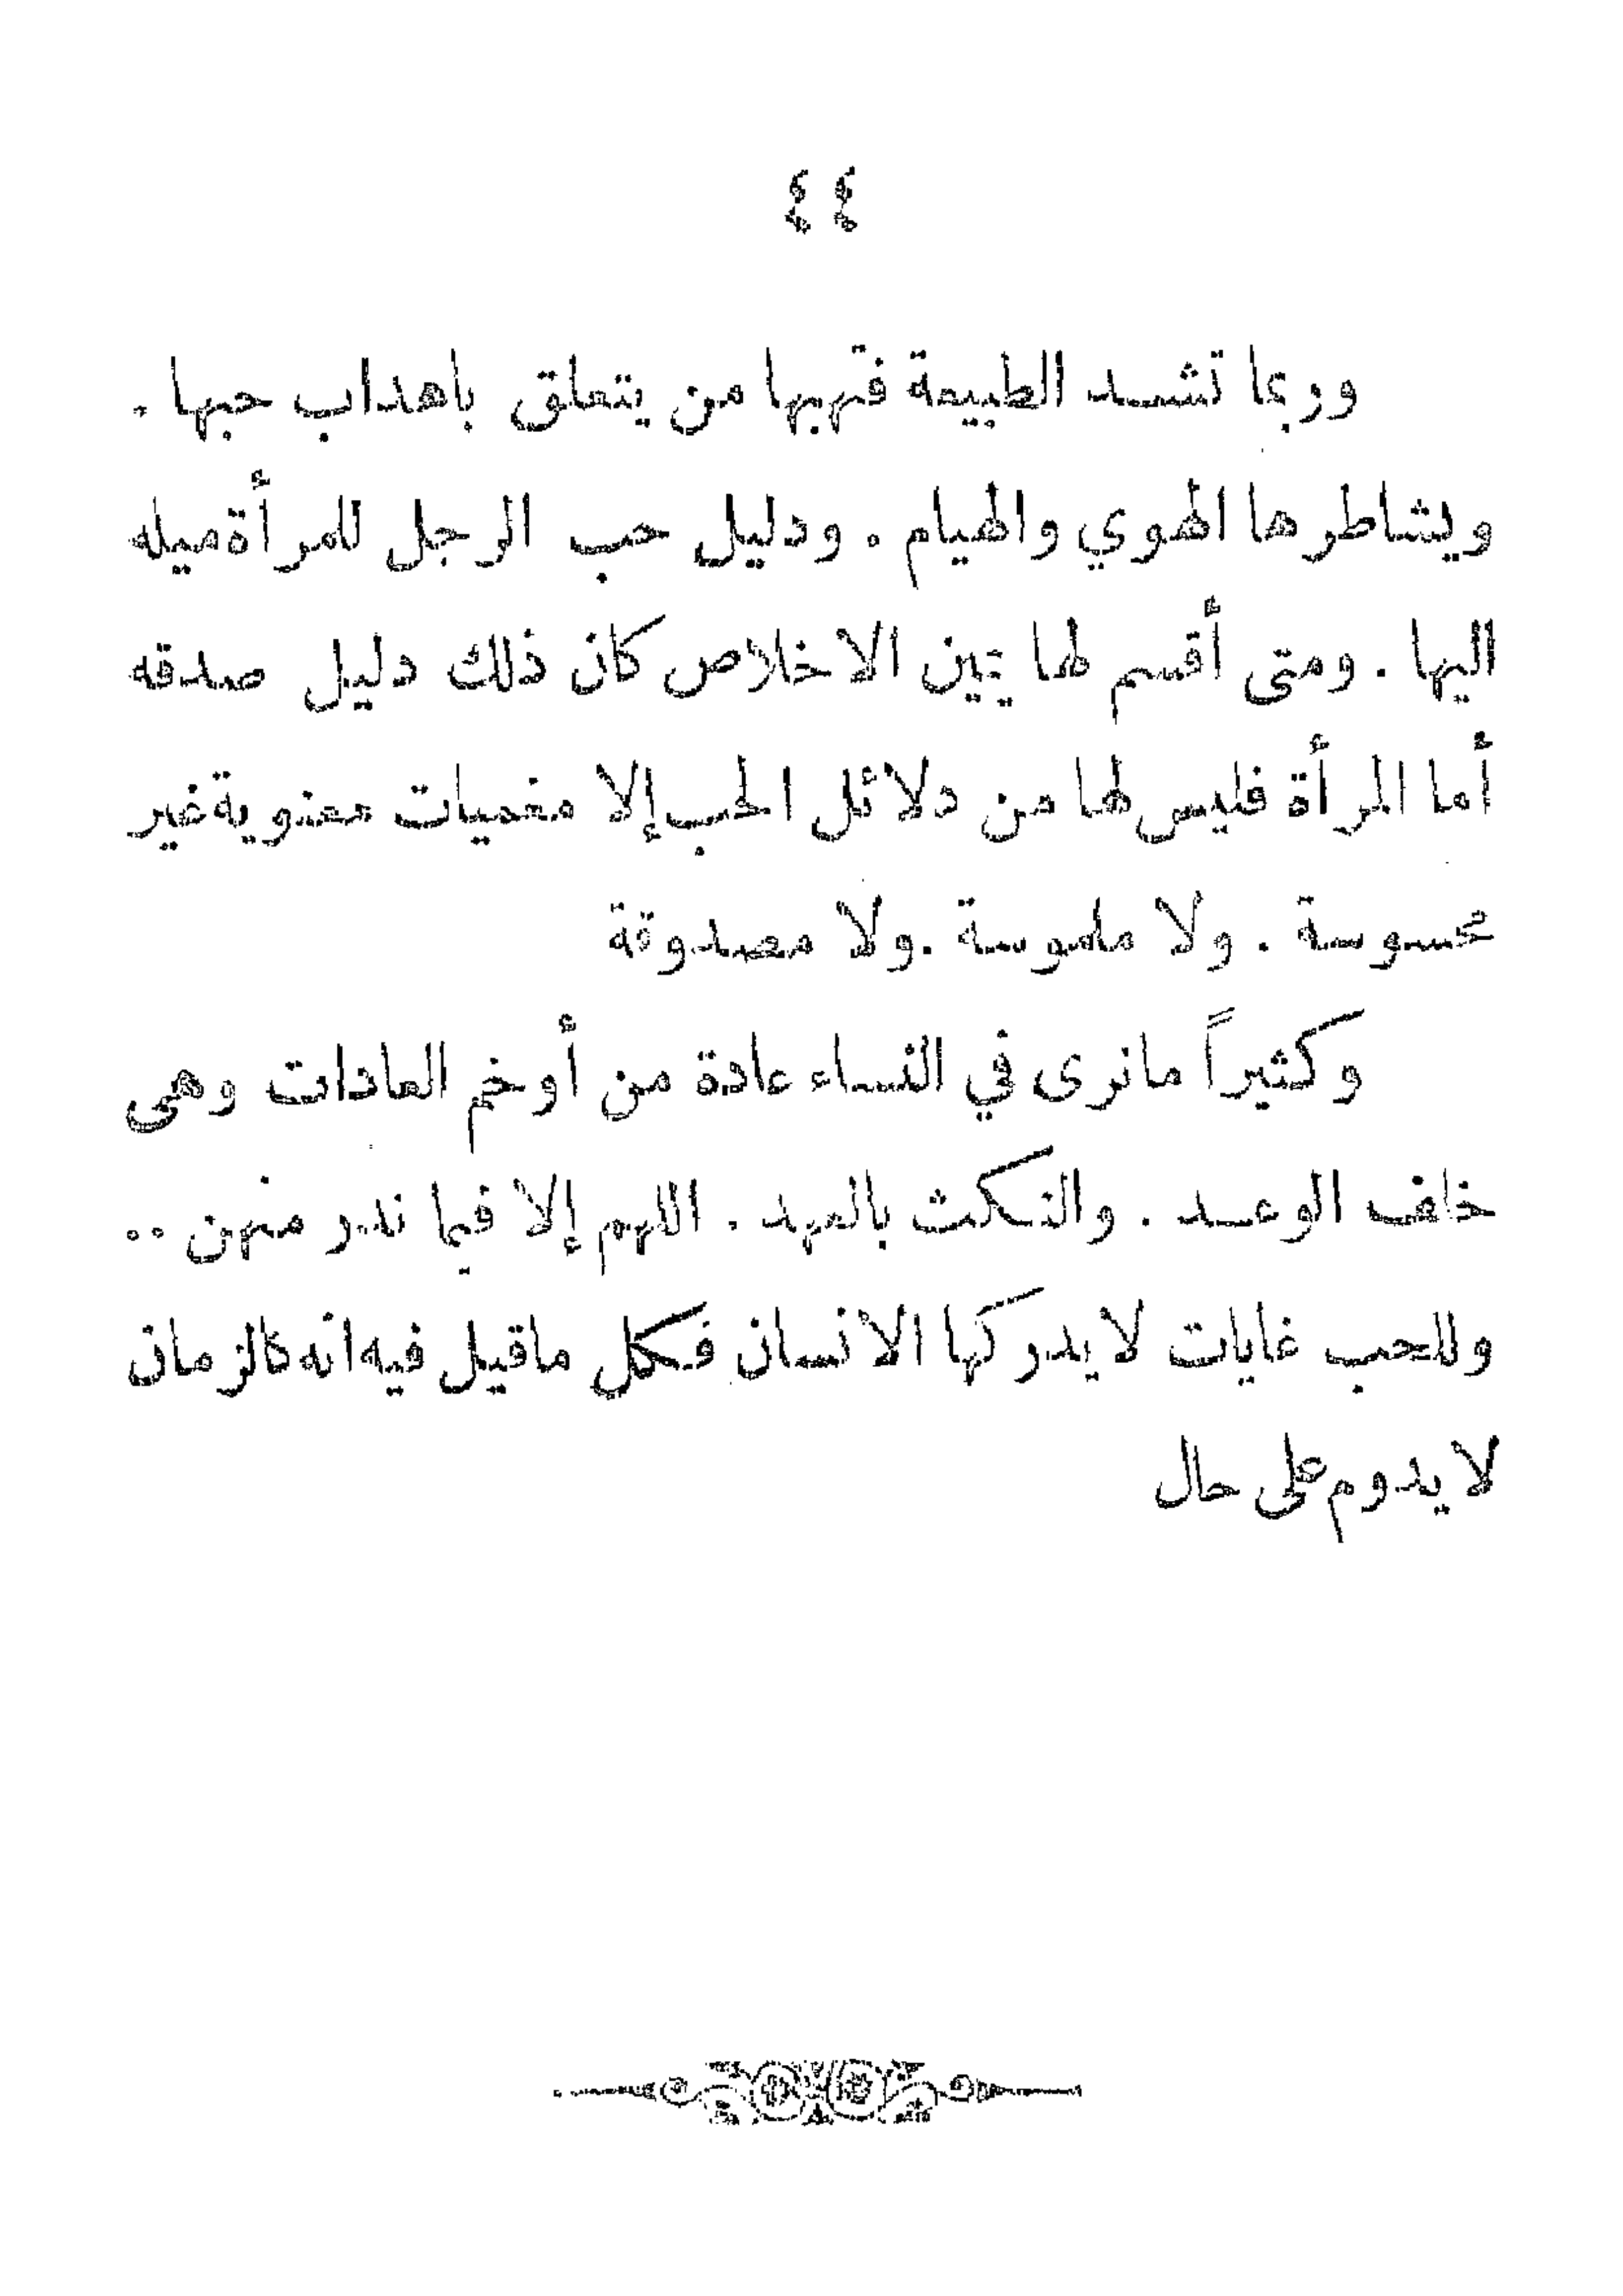 ٤٤
وربما تشــد الطبيعة فتهبها من يتعلق باهداب حبها .
ويشاطرها الهوي والهيام . ودليل حب الرجل للمرأة ميله
اليها . ومتى أقسم لها يمين الاخلاص كان ذلك دليل صدقه
أما المرأة فليس لها من دلائل الحب إلا معنوية غير
محسوسة . ولا ملموسة . ولا مصدوقة
وكثيراً مانرى في النساء عادة من أوخم العادات وهى
خلف الوعد . والنكث بالعهد . اللهم إلا فيما ندر منهن ..
وللحب غايات لايدركها الانسان فكل ماقيل فيه انه كالزمان
لا يدوم على حال